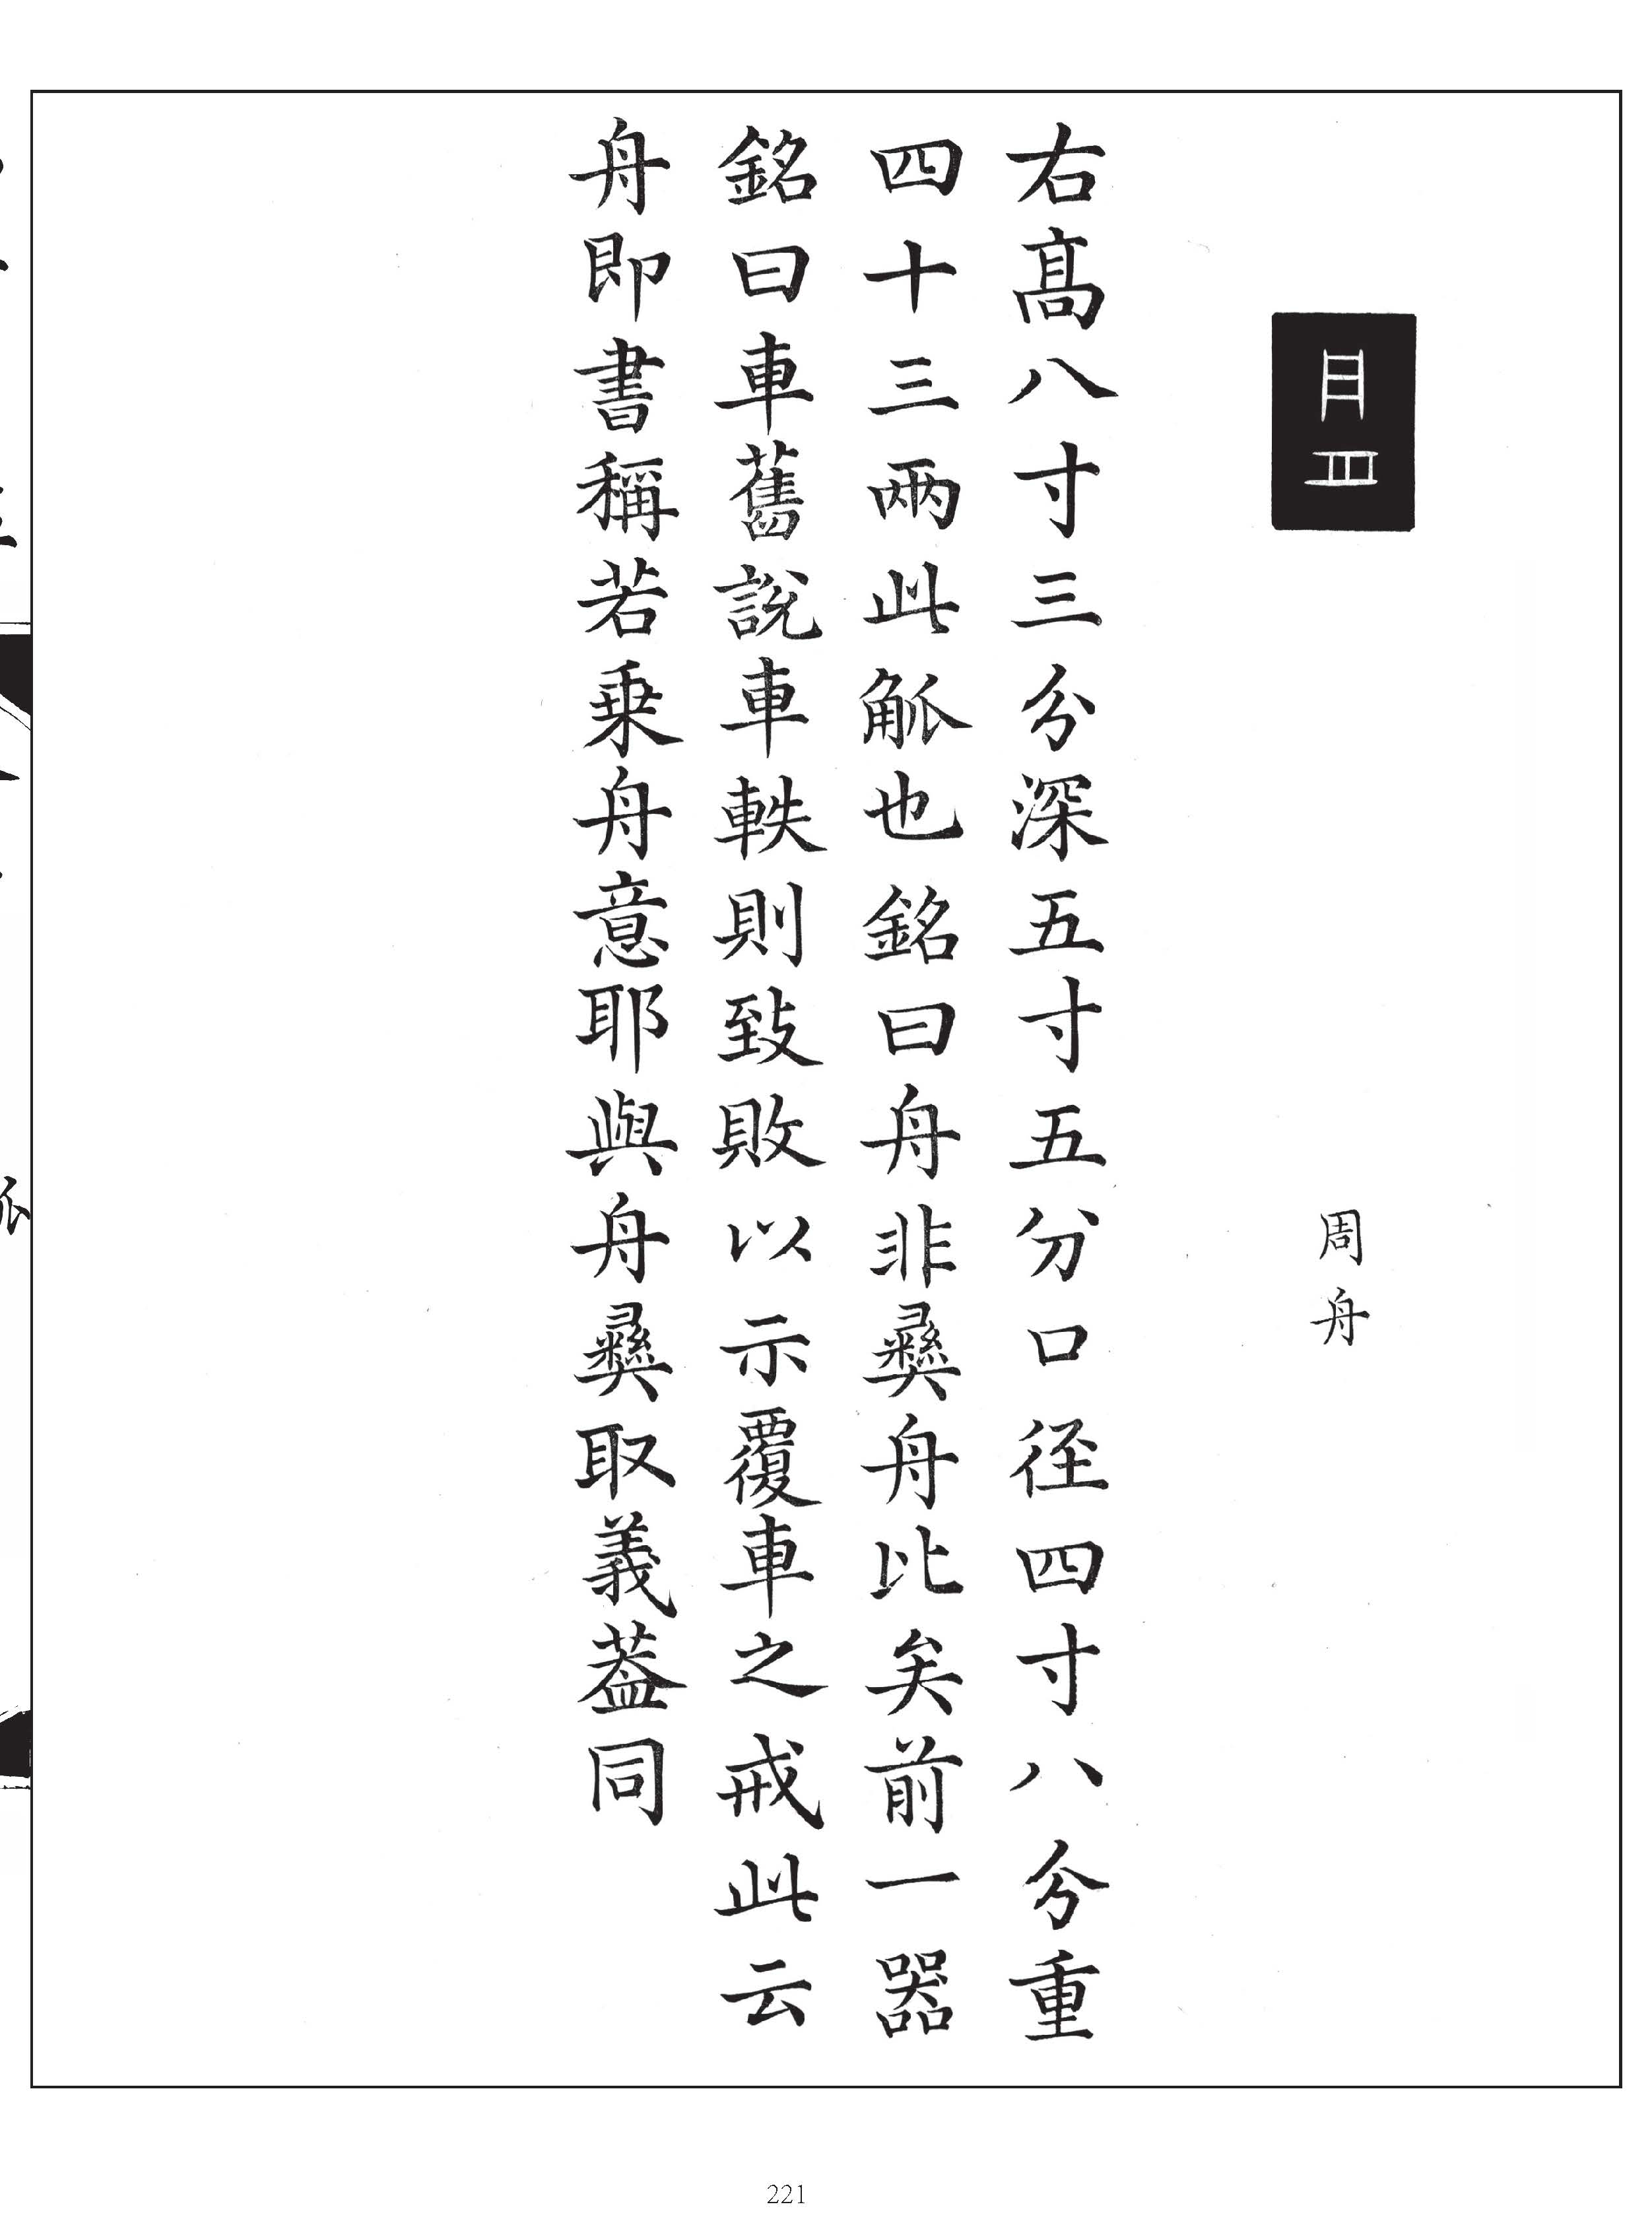 周舟
右高八寸三分深五寸五分口径四寸八分重
四十三兩此觚也銘曰舟非彝舟比矣前一器
銘曰車舊說車軼則致敗以示覆車之戒此云
舟即書稱若乗舟意耶與舟彝取義蓋同
221